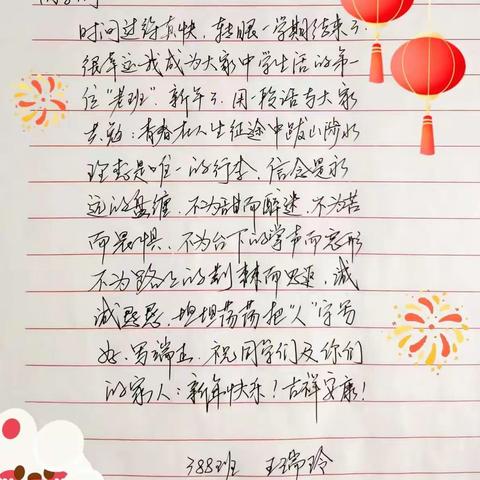 同学们
时间过得真快，转眼一学期结束了.
很幸运我成为大家中学生活的第一
位“老班”. 新年了. 用一段话与大家
共勉：青春在人生征途中跋山涉水
理想是唯一的行李. 信念是永
远的盘缠. 不为甜而醉迷. 不为苦
而畏惧. 不为台下的掌声而忘形
不为路上的荆棘而思退. 诚
诚恳恳. 坦坦荡荡把“人”字写
好. 写端正. 祝同学们及你们
的家人：新年快乐！吉祥安康！
388班 王瑞玲